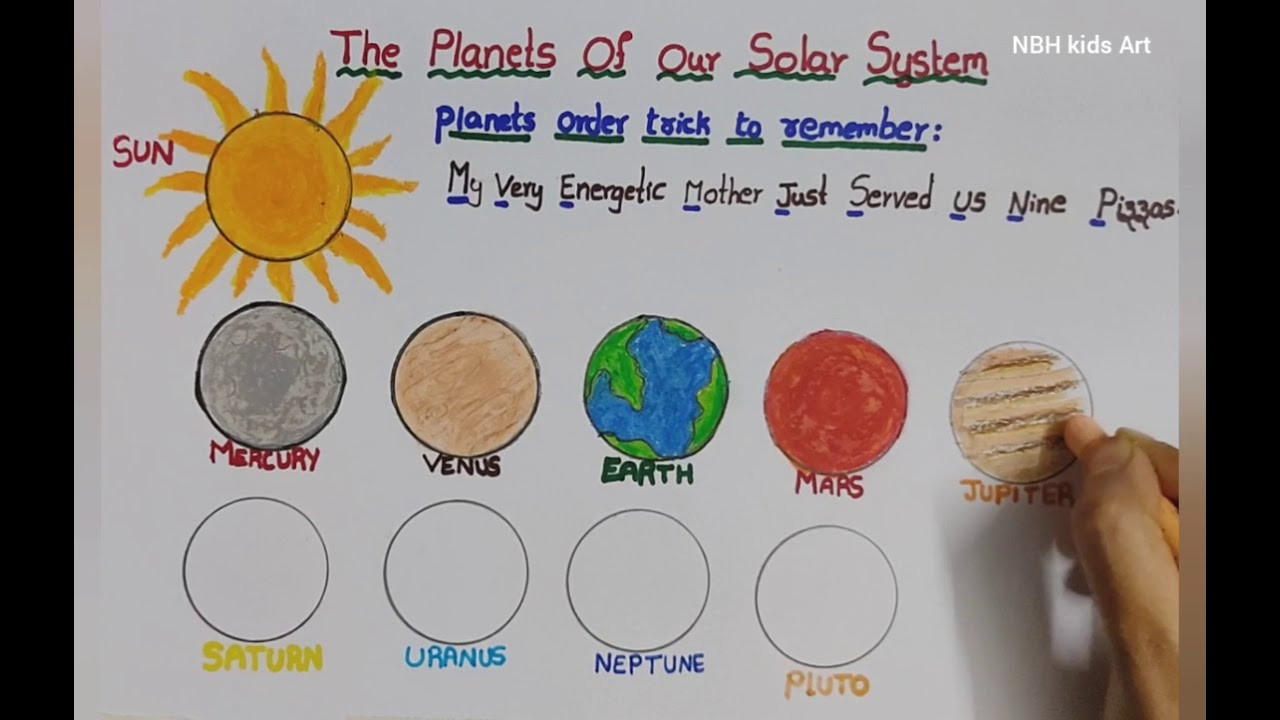 The Planets Of Our Solar System
NBH kids Art
Planets order trick to remember:
SUN
My Very Energetic Mother Just Served Us Nine Pizzas.
MERCURY
VENUS
EARTH
MARS
JUPITER
SATURN
URANUS
NEPTUNE
PLUTO